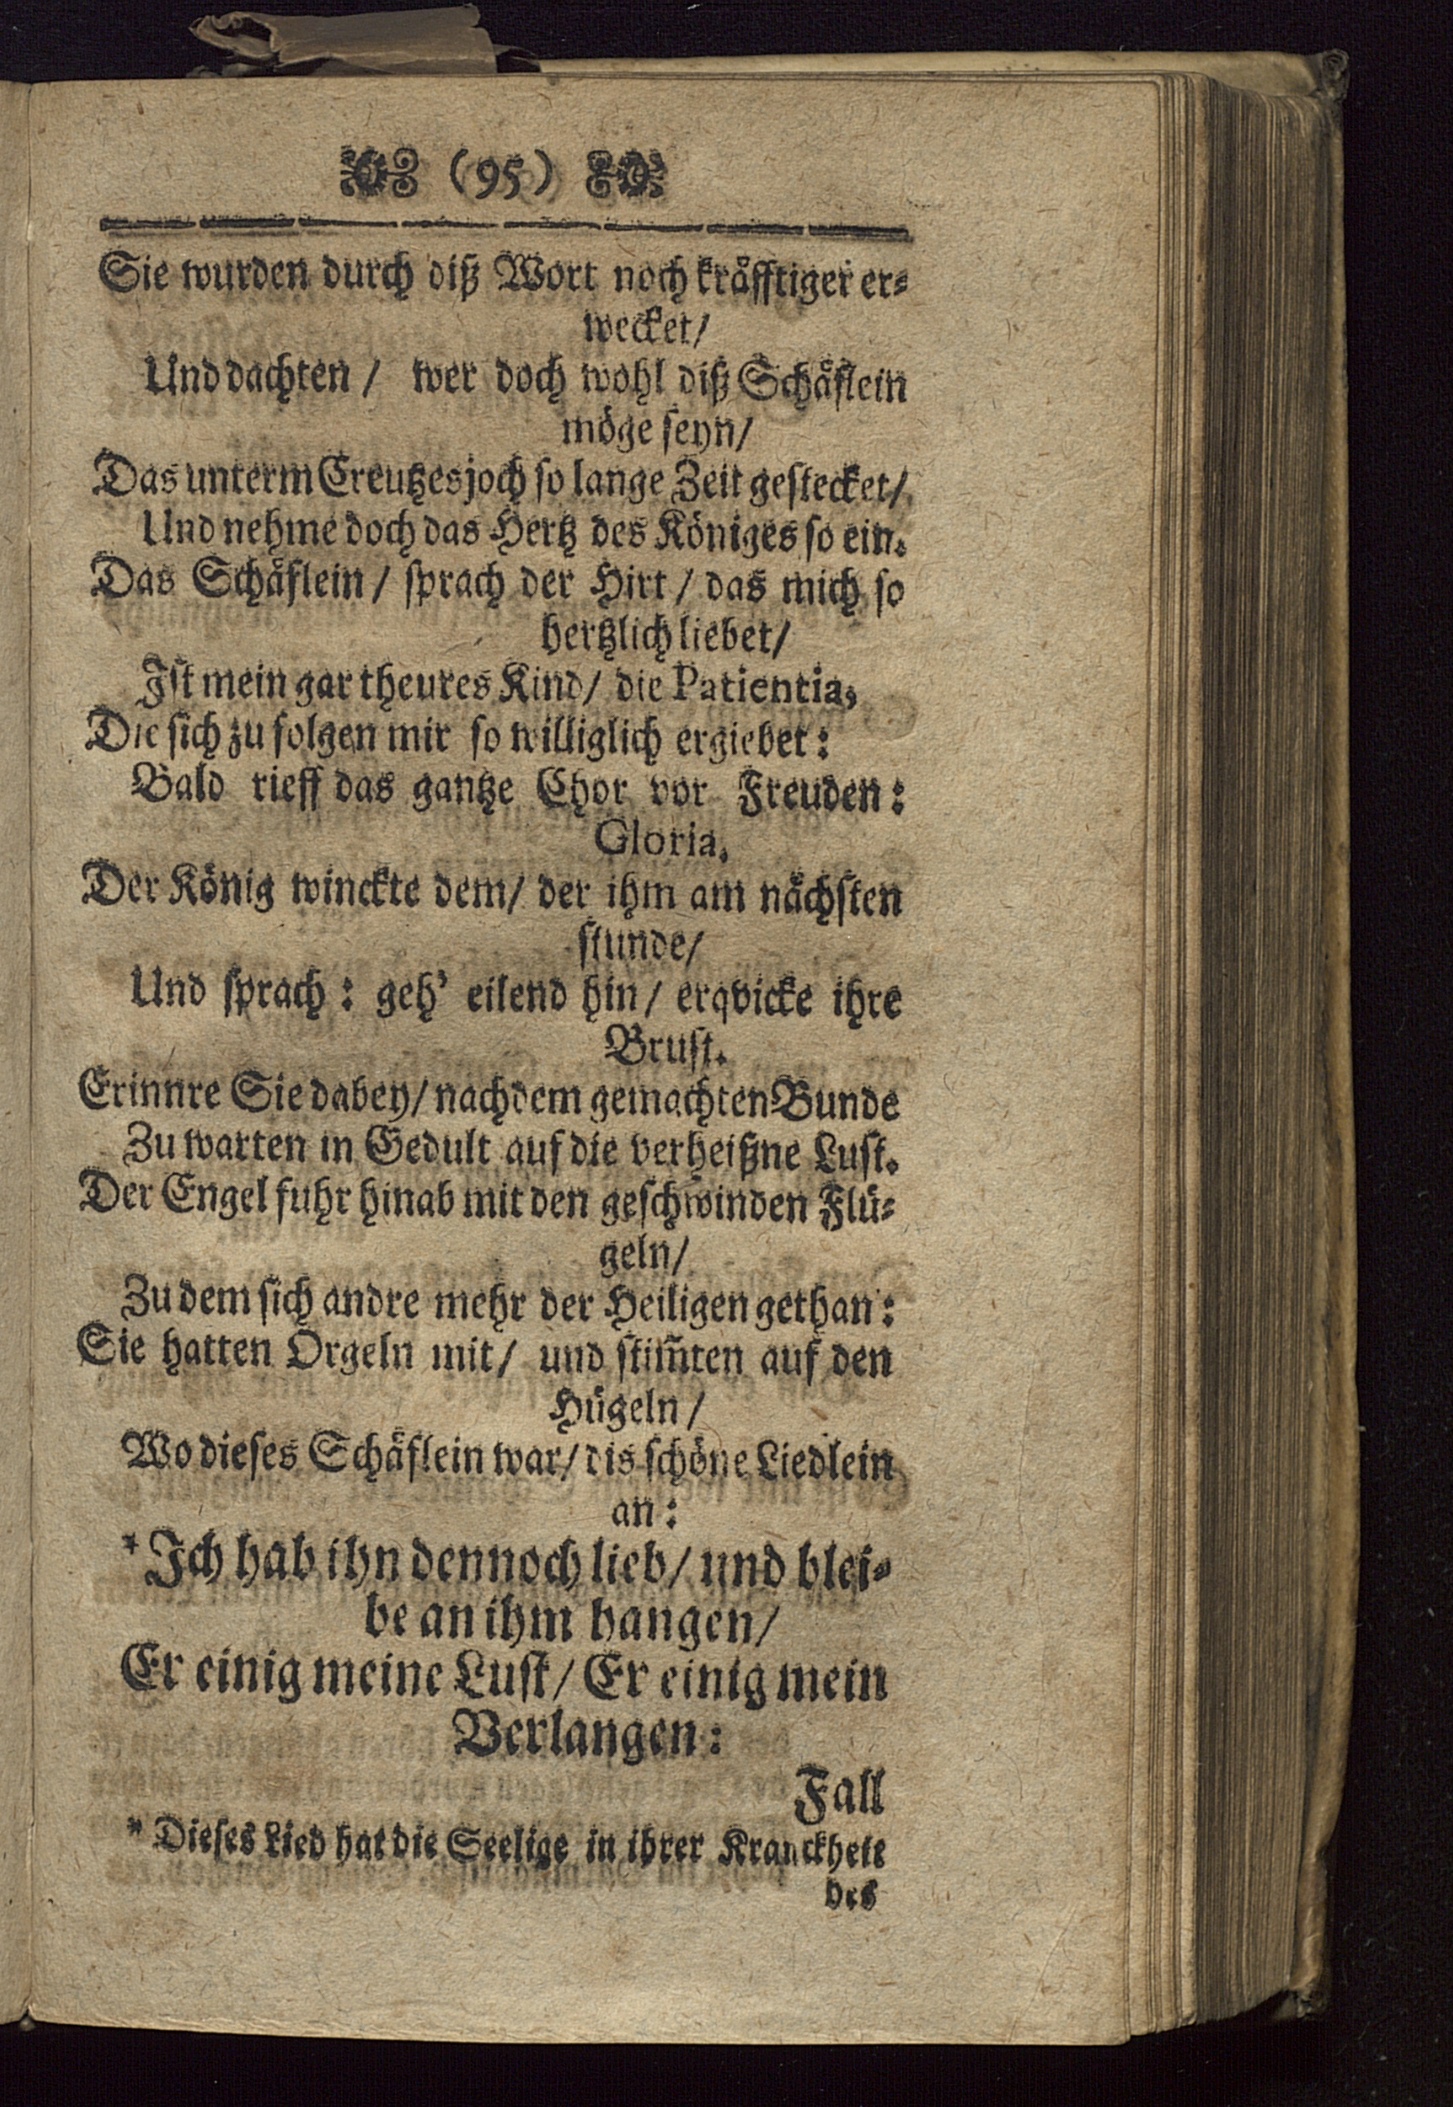 (95)
Sie wurden durch diß Wort noch kräfftiger er⸗
wecket/
Und dachten / wer doch wohl diß Schäflein
möge seyn/
Das unterm Creutzesjoch so lange Zeit gestecket/
Und nehme doch das Hertz des Königes so ein.
Das Schäflein / sprach der Hirt / das mich so
hertzlich liebet/
Ist mein gar theures Kind/ die Patientia,
Die sich zu folgen mir so williglich ergiebet:
Bald rieff das gantze Chor vor Freuden:
Gloria.
Der König winckte dem/ der ihm am nächsten
stunde/
Und sprach: geh' eilend hin/ erqvicke ihre
Brust.
Erinnre Sie dabey/ nach dem gemachten Bunde
Zu warten in Gedult auf die verheißne Lust.
Der Engel fuhr hinab mit den geschwinden Flü⸗
geln/
Zu dem sich andre mehr der Heiligen gethan:
Sie hatten Orgeln mit/ und stim̃ten auf den
Hügeln/
Wo dieses Schäflein war/ dis schöne Liedlein
an:
* Ich hab ihn dennoch lieb/ und blei⸗
be an ihm hangen/
Er einig meine Lust/ Er einig mein
Verlangen:
Fall
* Dieses Lied hat die Seelige in ihrer Kranckheit
des